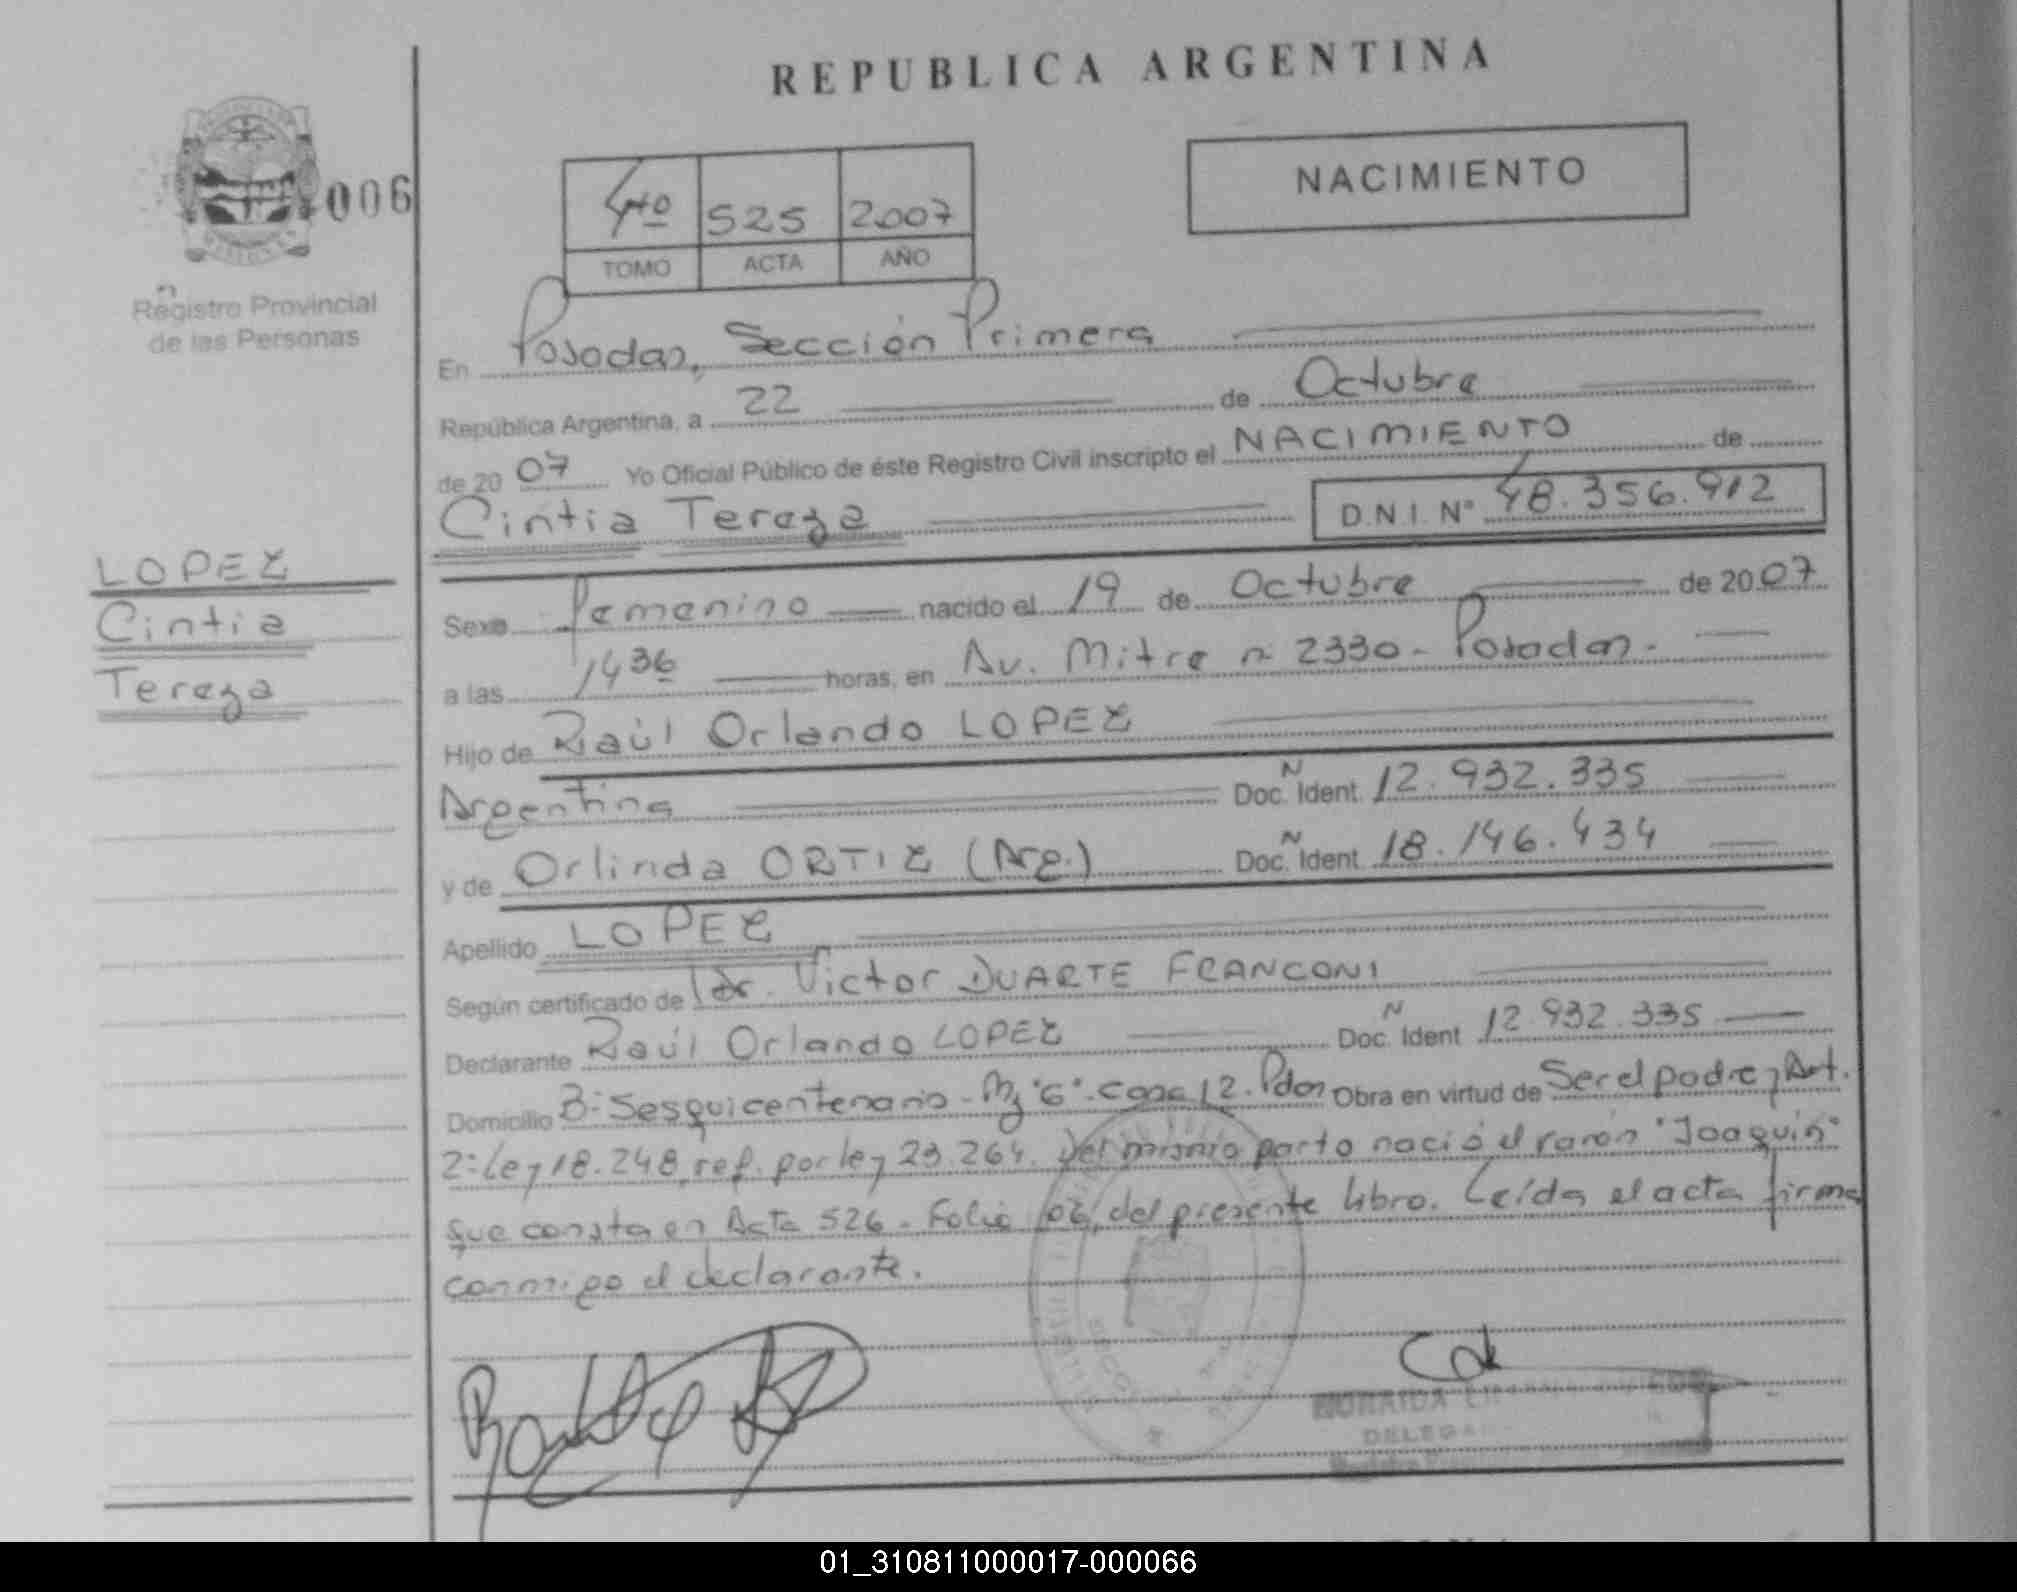 REPUBLICA ARGENTINA
006
Registro Provincial
de las Personas
NACIMIENTO
4to 525 2007
TOMO ACTA AÑO
En Posadas, Sección Primera
República Argentina, a 22 de Octubre
de 2007 Yo Oficial Público de éste Registro Civil inscripto el NACIMIENTO de
Cintia Tereza D.N.I. Nº 48.356.912
LOPEZ
Cintia
Tereza
Sexo Femenino nacido el 19 de Octubre de 2007
a las 1436 horas, en Av. Mitre nº 2330 - Posadas.
Hijo de Raúl Orlando LOPEZ
Argentina Doc. N Ident. 12.932.335
y de Orlinda ORTIZ (Arg.) Doc. N Ident. 18.146.434
Apellido LOPEZ
Según certificado de Dr. Victor DUARTE FRANCONI
Declarante Raúl Orlando LOPEZ Doc. N Ident 12.932.335
Domicilio Bº Sesquicentenario - Mz "G" - casa 12. Pdas Obra en virtud de Ser el padre y Art.
2º Ley 18.248, ref. por ley 23.264. Del mismo parto nació el varón "Joaquín"
que consta en Acta 526 - Folio 06, del presente libro. Leída el acta firma
conmigo el declarante.
DELEGA
01_310811000017-000066